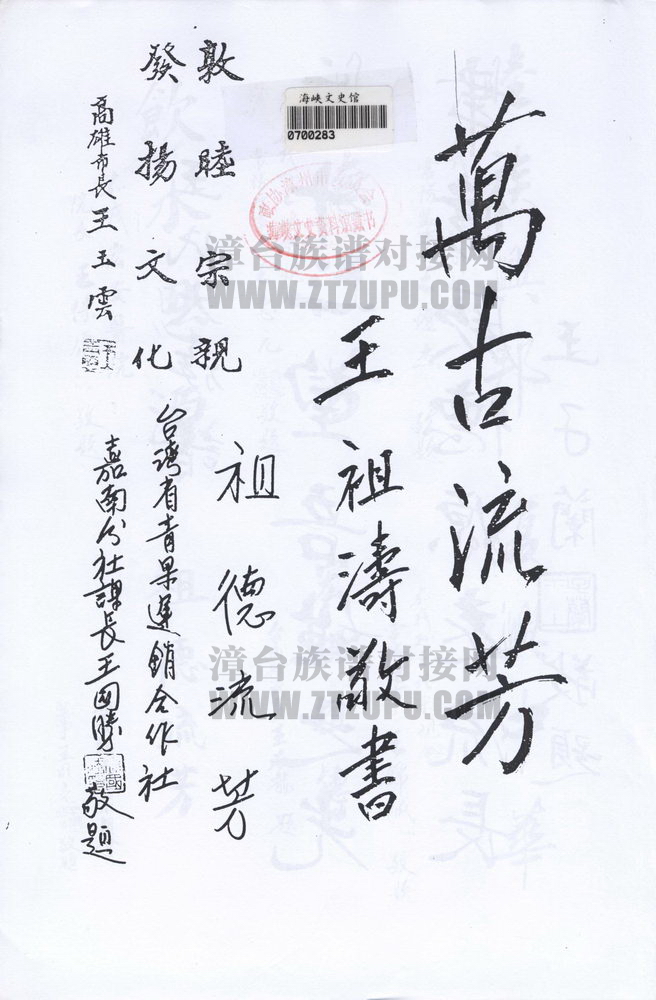 萬古流芳
王祖濤敬書
敦睦宗親
發揚文化
高雄市長王玉雲
祖德流芳
台灣省青果運銷合作社
嘉南分社課長王國勝敬題
海峡文史馆
0700283
漳台族谱对接网
WWW.ZTZUPU.COM
漳台族谱对接网
WWW.ZTZUPU.COM